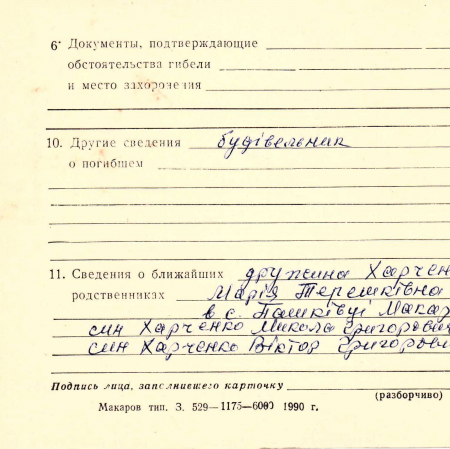 6• Документы, подтверждающие
обстоятельства гибели
и место захоронения
10. Другие сведения будівельник
о погибшем
11. Сведения о ближайших дружина Харчен
родственниках Марія Терешківна
в с. Пашківці Макар
син Харченко Микола Григорович
син Харченко Віктор Григоров
Подпись лица, заполнившего карточку
(разборчиво)
Макаров тип. З. 529—1175—6000 1990 г.